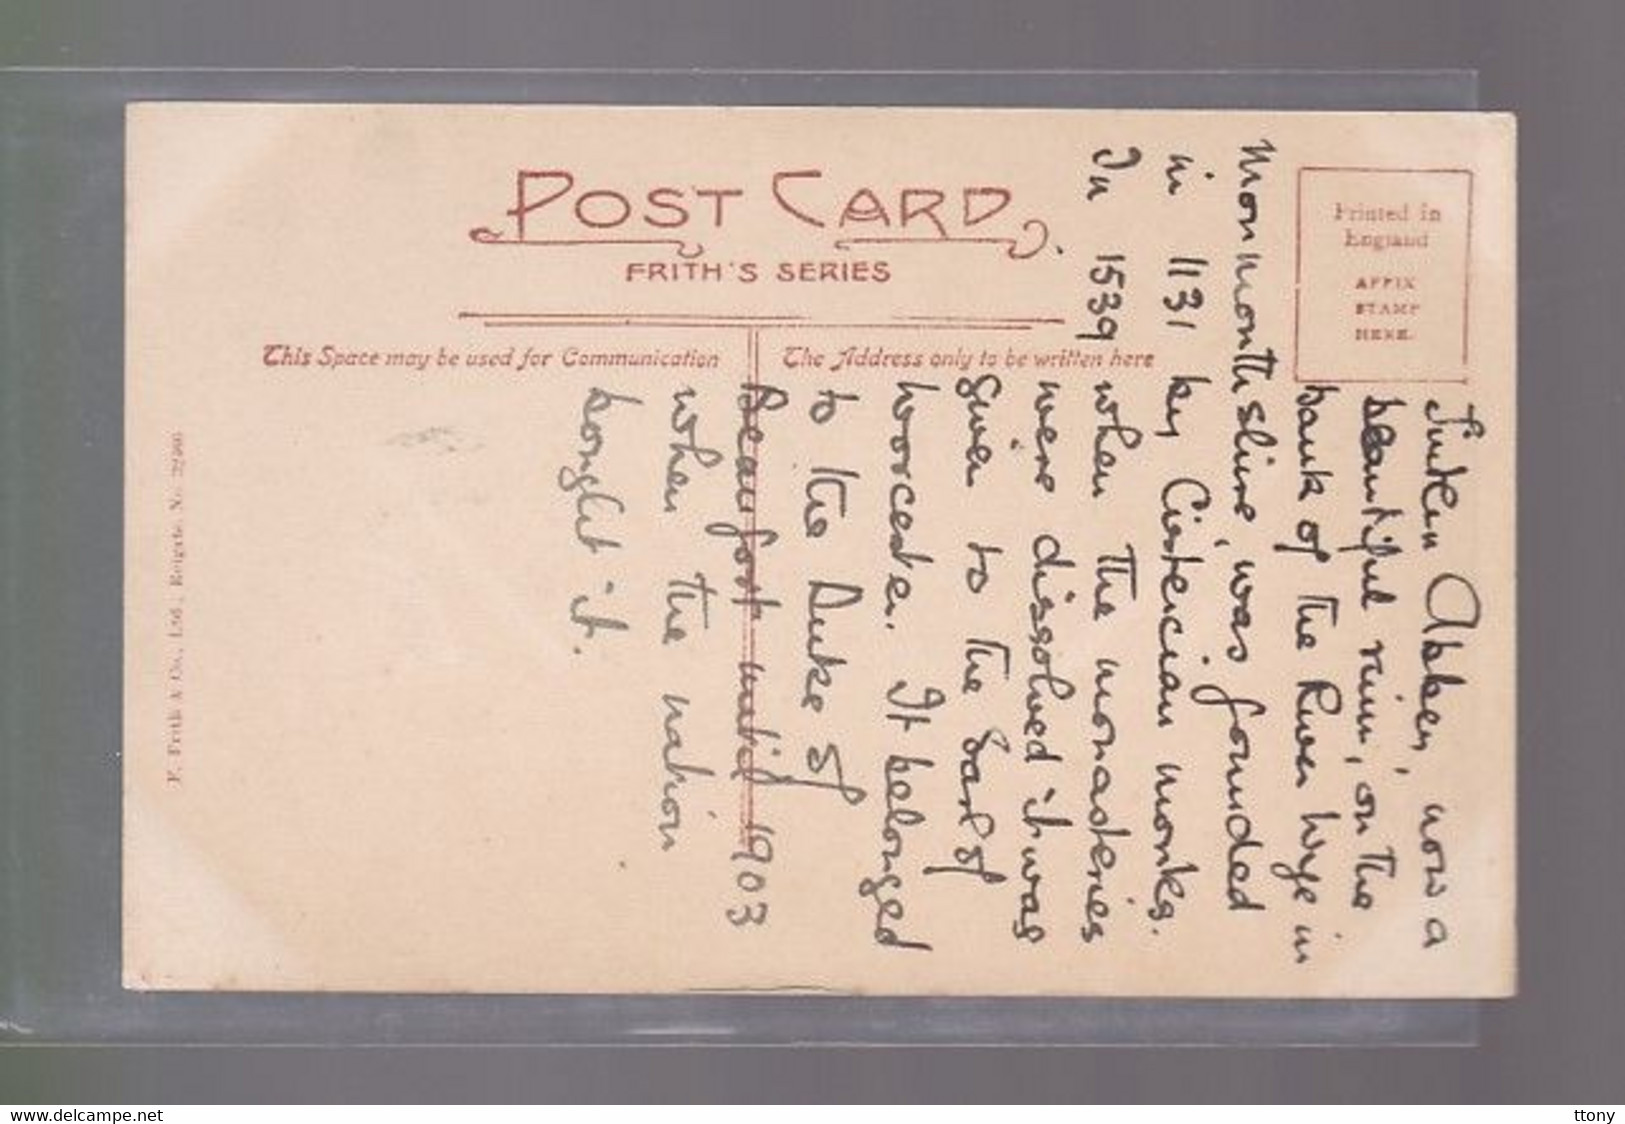 POST CARD.
FRITH'S SERIES
This Space may be used for Communication
The Address only to be written here
Printed in
England
AFFIX
STAMP
HERE.
F. Frith & Co., Ltd., Reigate. No.
Tintern Abbey, now a
beautiful ruin, on the
bank of the River Wye in
Monmouthshire, was founded
in 1131 by Cistercian monks.
In 1539 when the monasteries
were dissolved it was
given to the Earl of
Worcester. It belonged
to the Duke of
Beaufort until 1903
when the nation
bought it.
www.delcampe.net
ttony